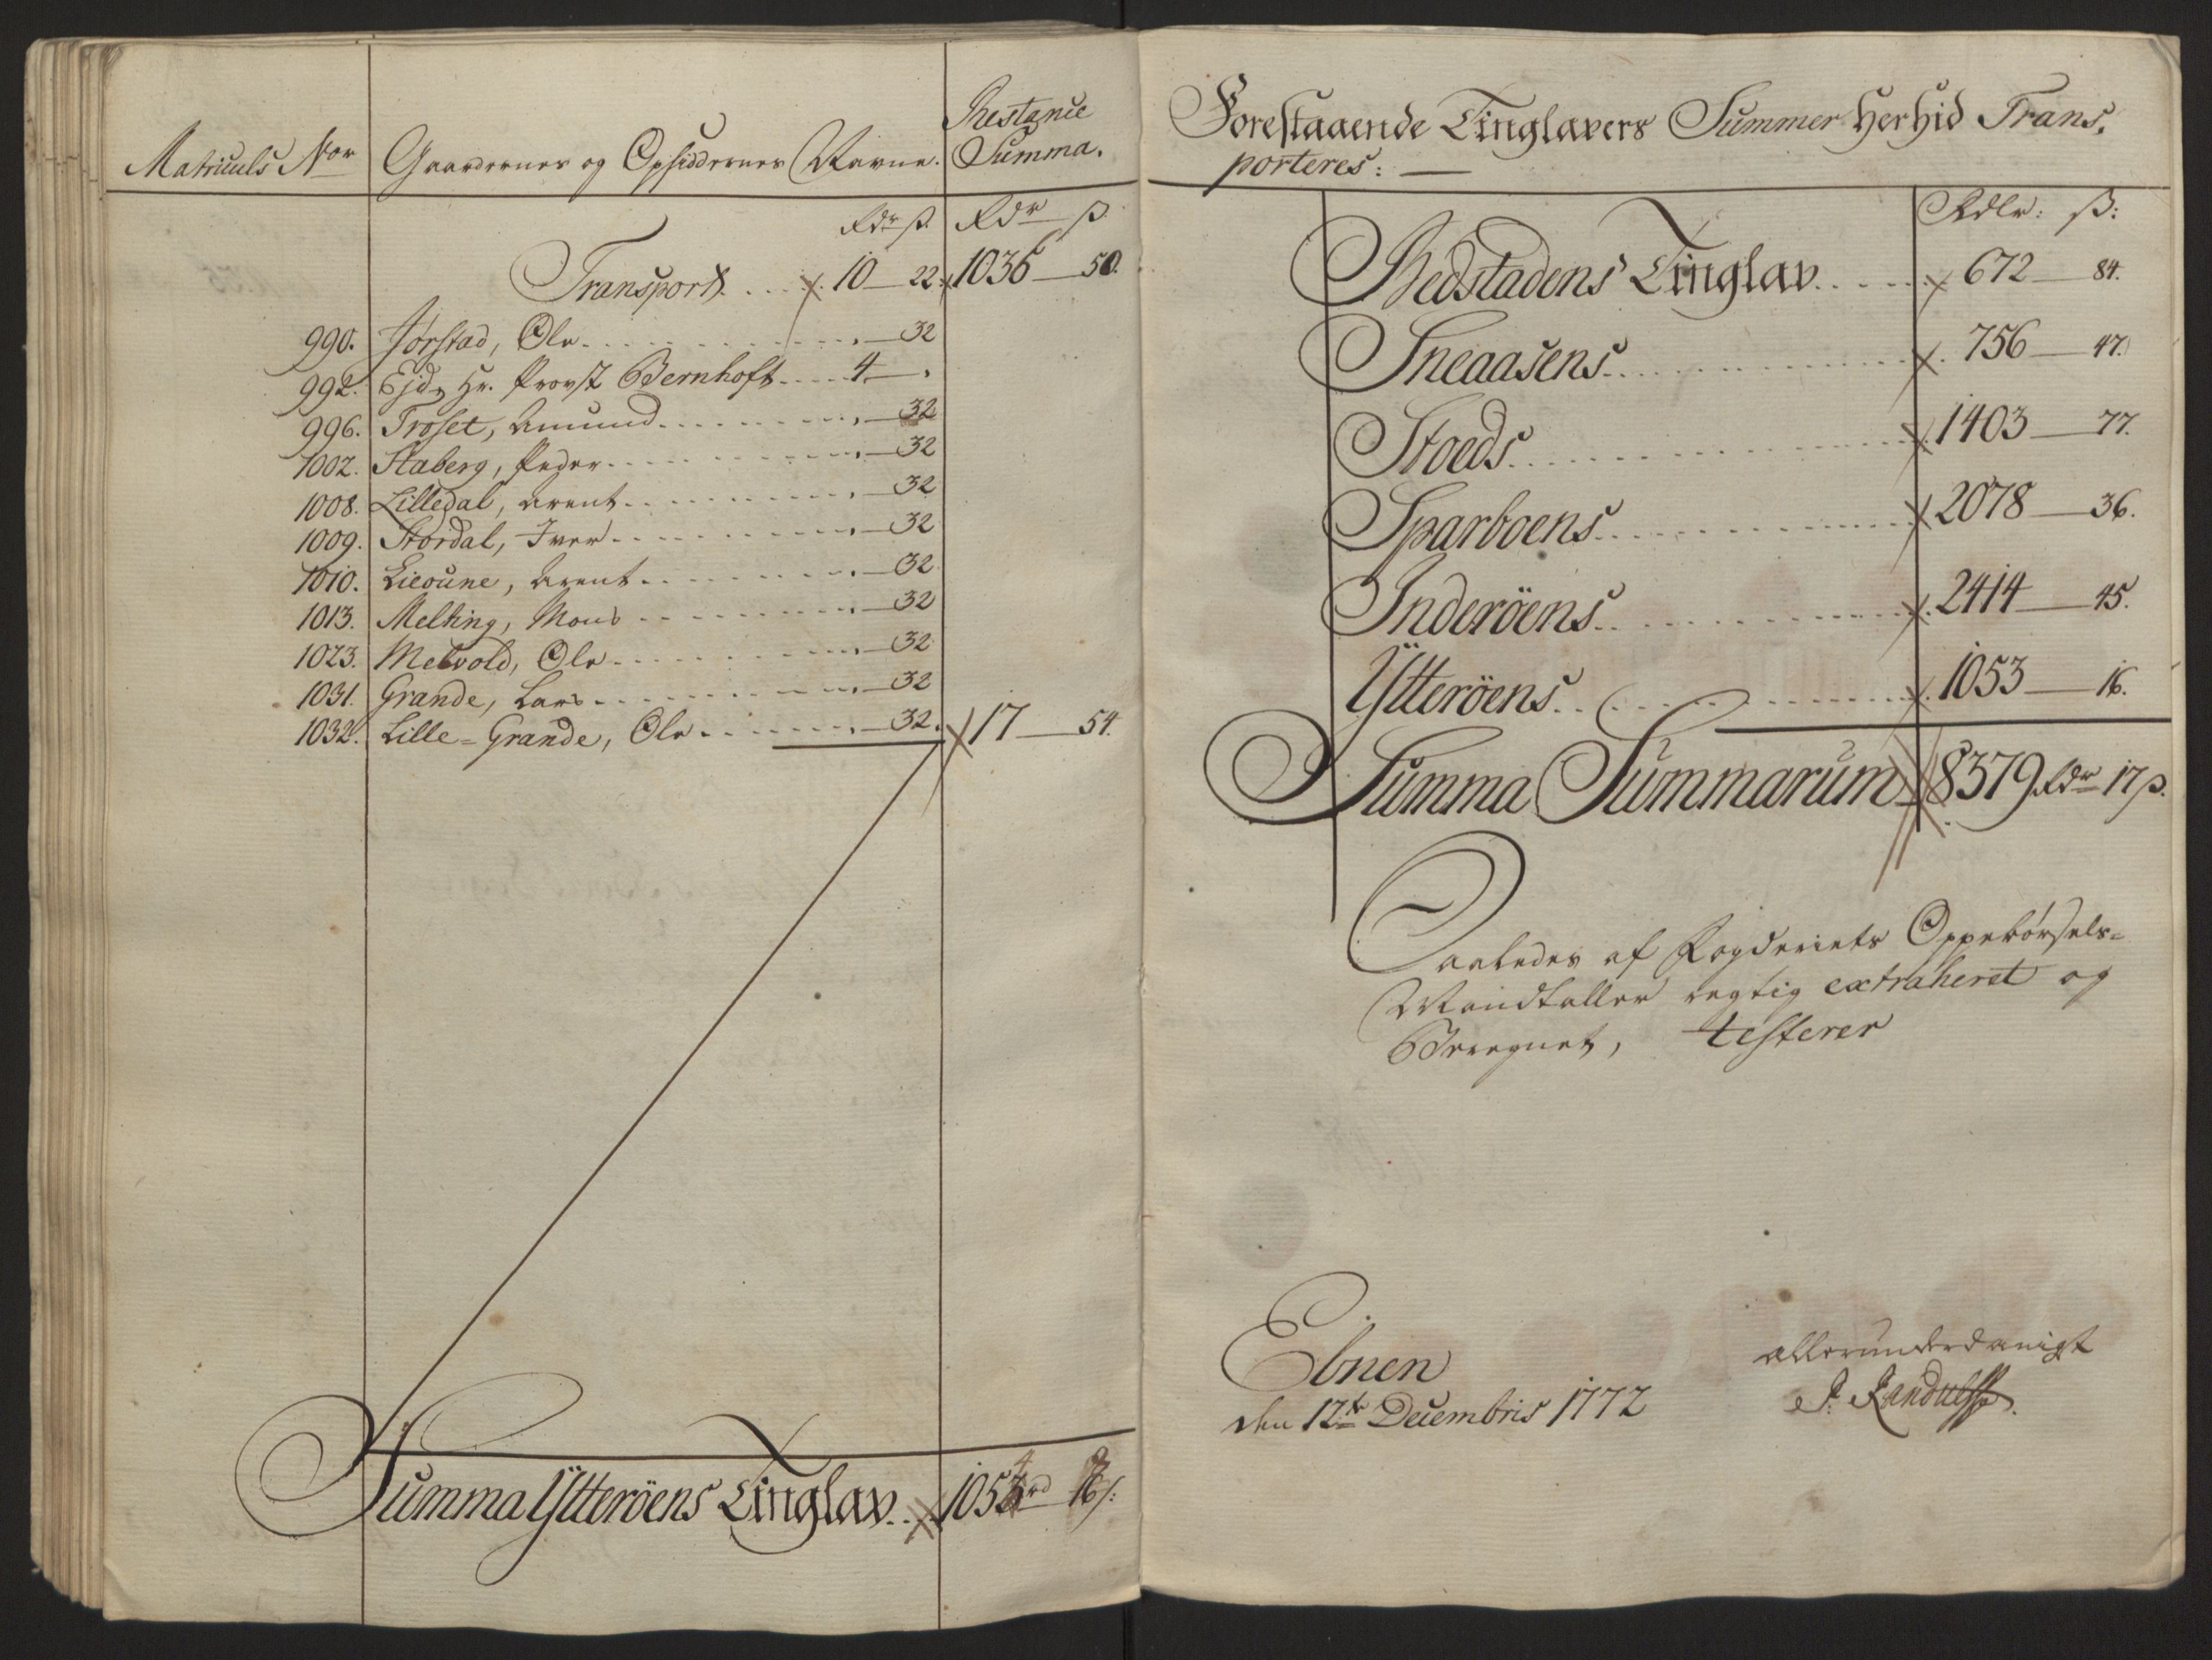 Matriculs Nor Gaardernes og Opsiddernes Navne. Restance Summa.
Rdr ß. Rdr ß
Transport . . . . 10 — 22. 1036 — 50.
990. Jørstad, Ole . . . . — 32
992. Ejd. Hr. Provst Bernhoft . . . . 4 — .
996. Troset, Amund . . . . — 32
1002. Staberg, Peder . . . . — 32
1008. Lilledal, Arent . . . . — 32
1009. Stordal, Iver . . . . — 32
1010. Lieoune, Arent . . . . — 32
1013. Melting, Mons . . . . — 32
1023. Melvold, Ole . . . . — 32
1031. Grande, Lars . . . . — 32
1032. Lille-Grande, Ole . . . . — 32. 17 — 54.
Summa Ytterøens Tinglav . . 1053 rd 16 ß:
Forestaaende Tinglavers Summer Herhid Trans-
porteres: —
Rdlr: ß:
Bedstadens Tinglav . . . . 672 — 84.
Sneaasens . . . . 756 — 47.
Stoeds . . . . 1403 — 77.
Sparboens . . . . 2078 — 36.
Inderöens . . . . 2414 — 45.
Ytteröens . . . . 1053 — 16.
Summa Summarum 8379 Rdr 17 ß.
Saaledes af Fogderiets Oppebørsels-
Mandtaller rigtig extraheret og
Beregnet, testerer
Ebnen
den 12te Decembris 1772
allerunderdanigst
J. Randulff